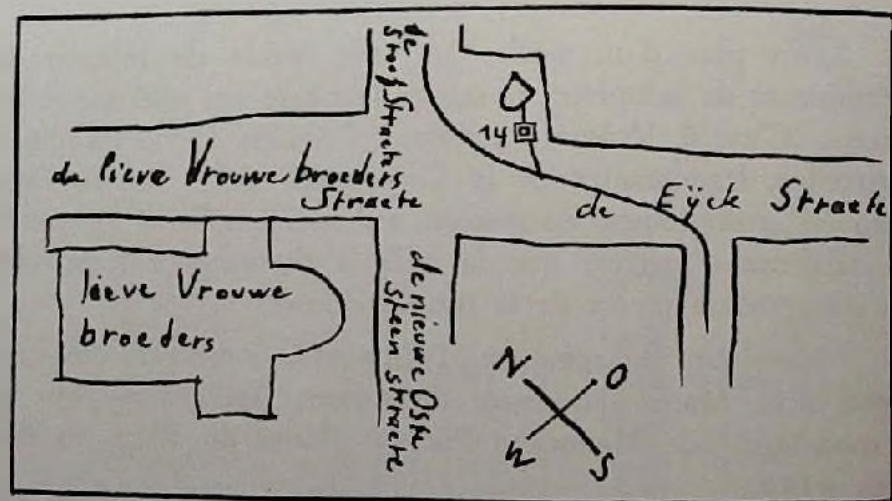 de
stoof Straete
14
de lieve Vrouwe broeders
Straete
de Eÿck Straete
lieve Vrouwe
broeders
de nieuwe Oste
steen straete
N O
W S